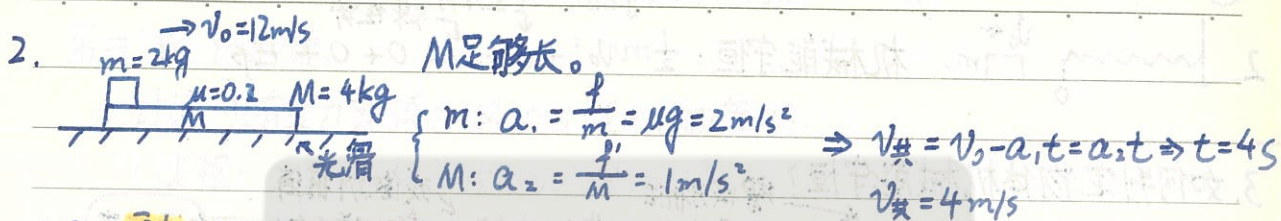 2. m=2kg → v₀=12m/s M足够长。
μ=0.2 M=4kg
M
光滑
{ m: a₁ = f/m = μg = 2m/s²
M: a₂ = f'/M = 1m/s²
⇒ v共 = v₀-a₁t = a₂t ⇒ t=4s
v共 = 4m/s